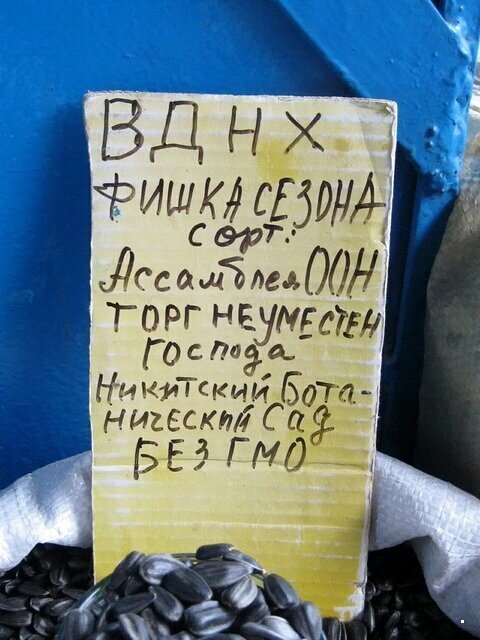 ВДНХ
ФИШКА СЕЗОНА
СОРТ:
Ассамблея ООН
ТОРГ НЕУМЕСТЕН
Господа
Никитский Бота-
нический Сад
БЕЗ ГМО